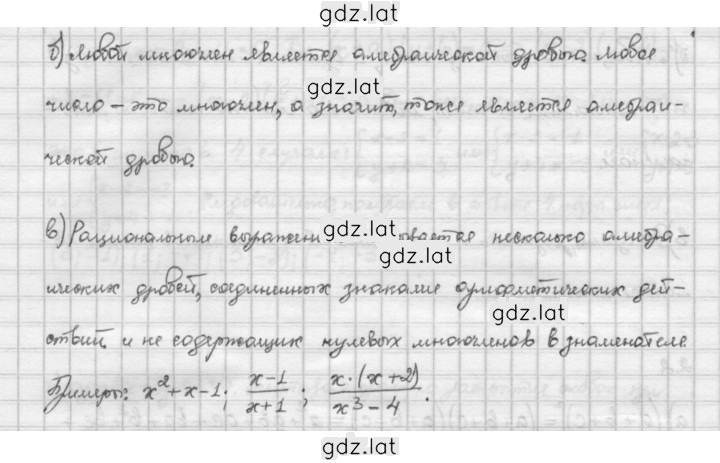 gdz.lat
б) Любой многочлен является алгебраической дробью. Любое
gdz.lat
число – это многочлен, а значит, тоже является алгебраи-
gdz.lat
ческой дробью.
в) Рациональным выражени вается несколько алгебра-
gdz.lat
ических дробей, соединенных знаками арифметических дей-
gdz.lat
ствий и не содержащих нулевых многочленов в знаменателе
gdz.lat
Примеры: x²+x-1; (x-1)/(x+1); (x·(x+2))/(x³-4).
gdz.lat